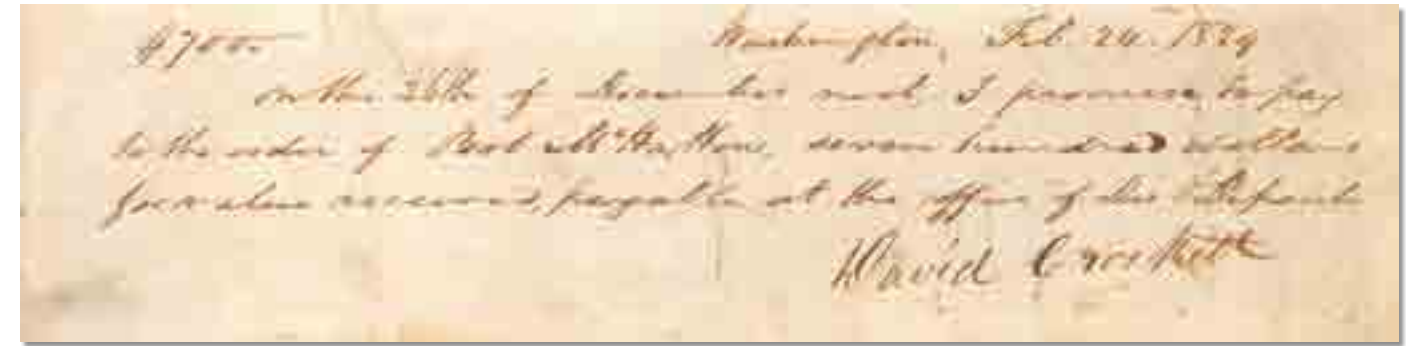 $700— Washington, Feb. 24. 1829
on the 26th of December next I promise to pay
to the order of Robt McHatton, seven hundred dollars
for value received, payable at the office of Dis & Deposit
David Crockett